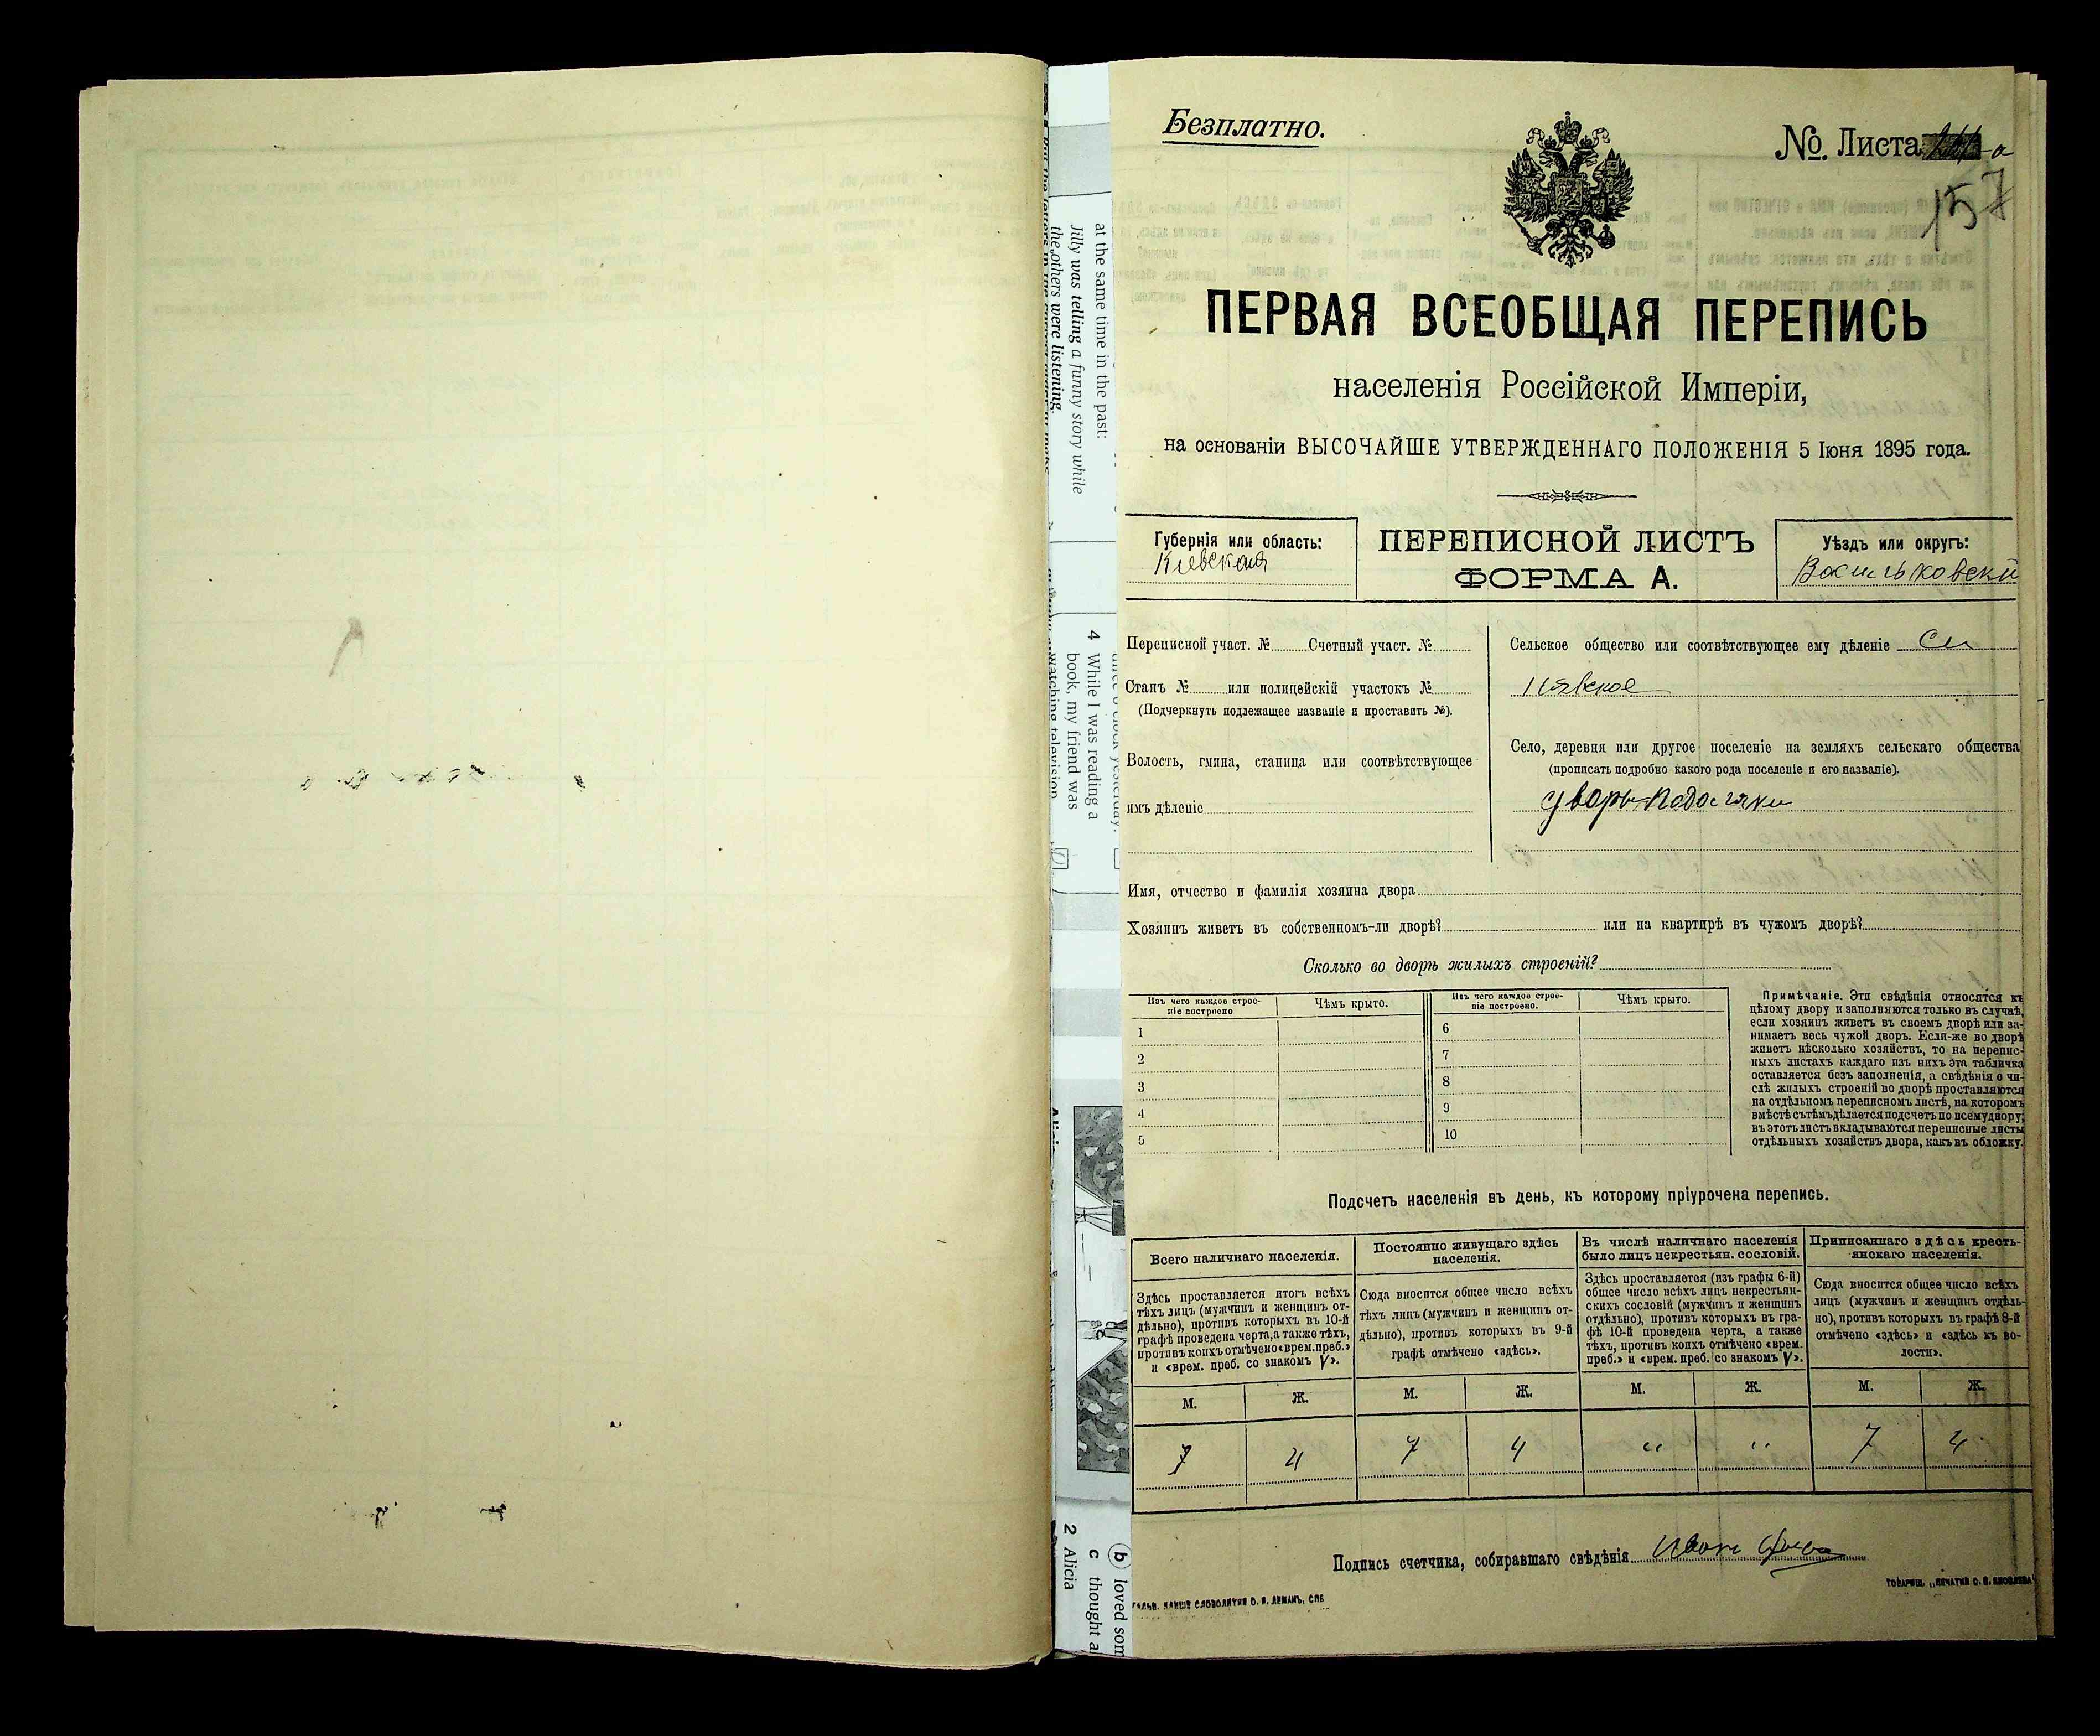 Безплатно.
№ Листа
157
ПЕРВАЯ ВСЕОБЩАЯ ПЕРЕПИСЬ
населенія Россійской Имперіи,
на основаніи ВЫСОЧАЙШЕ УТВЕРЖДЕННАГО ПОЛОЖЕНІЯ 5 Іюня 1895 года.
Губернія или область:
Кіевская
ПЕРЕПИСНОЙ ЛИСТЪ
ФОРМА А.
Уѣздъ или округъ:
Васильковскій
Переписной участ. № Счетный участ. №
Станъ № или полицейскій участокъ №
(Подчеркнуть подлежащее названіе и проставить №).
Волость, гмина, станица или соотвѣтствующее
имъ дѣленіе
Сельское общество или соотвѣтствующее ему дѣленіе
Село, деревня или другое поселеніе на земляхъ сельскаго общества
(прописать подробно какого рода поселеніе и его названіе).
Имя, отчество и фамилія хозяина двора
Хозяинъ живетъ въ собственномъ-ли дворѣ? или на квартирѣ въ чужомъ дворѣ?
Сколько во дворѣ жилыхъ строеній?
Изъ чего каждое строе-
ніе построено
Чѣмъ крыто.
Изъ чего каждое строе-
ніе построено.
Чѣмъ крыто.
1
2
3
4
5
6
7
8
9
10
Примѣчаніе. Эти свѣдѣнія относятся къ
цѣлому двору и заполняются только въ случаѣ,
если хозяинъ живетъ въ своемъ дворѣ или за-
нимаетъ весь чужой дворъ. Если-же во дворѣ
живетъ нѣсколько хозяйствъ, то на перепис-
ныхъ листахъ каждаго изъ нихъ эта табличка
оставляется безъ заполненія, а свѣдѣнія о чи-
слѣ жилыхъ строеній во дворѣ проставляются
на отдѣльномъ переписномъ листѣ, на которомъ
вмѣстѣ съ тѣмъ дѣлается подсчетъ по всему двору;
въ этотъ листъ вкладываются переписные листы
отдѣльныхъ хозяйствъ двора, какъ въ обложку.
Подсчетъ населенія въ день, къ которому пріурочена перепись.
Всего наличнаго населенія.
Здѣсь проставляется итогъ всѣхъ
тѣхъ лицъ (мужчинъ и женщинъ от-
дѣльно), противъ которыхъ въ 10-й
графѣ проведена черта, а также тѣхъ,
противъ коихъ отмѣчено «врем. преб.»
и «врем. преб. со знакомъ V».
Постоянно живущаго здѣсь
населенія.
Сюда вносится общее число всѣхъ
тѣхъ лицъ (мужчинъ и женщинъ от-
дѣльно), противъ которыхъ въ 9-й
графѣ отмѣчено «здѣсь».
Въ числѣ наличнаго населенія
было лицъ некрестьян. сословій.
Здѣсь проставляется (изъ графы 6-й)
общее число всѣхъ лицъ некрестьян-
скихъ сословій (мужчинъ и женщинъ
отдѣльно), противъ которыхъ въ гра-
фѣ 10-й проведена черта, а также
тѣхъ, противъ коихъ отмѣчено «врем.
преб.» и «врем. преб. со знакомъ V».
Приписаннаго здѣсь кресть-
янскаго населенія.
Сюда вносится общее число всѣхъ
лицъ (мужчинъ и женщинъ отдѣль-
но), противъ которыхъ въ графѣ 8-й
отмѣчено «здѣсь» и «здѣсь къ во-
лости».
М. Ж. М. Ж. М. Ж. М. Ж.
7 4 7 4 " " 7 4
Подпись счетчика, собиравшаго свѣдѣнія Иванъ
at the same time in the past:
Jilly was telling a funny story while
the others were listening.
4 While I was reading a
book, my friend was
watching television
b loved som
c thought a
2 Alicia